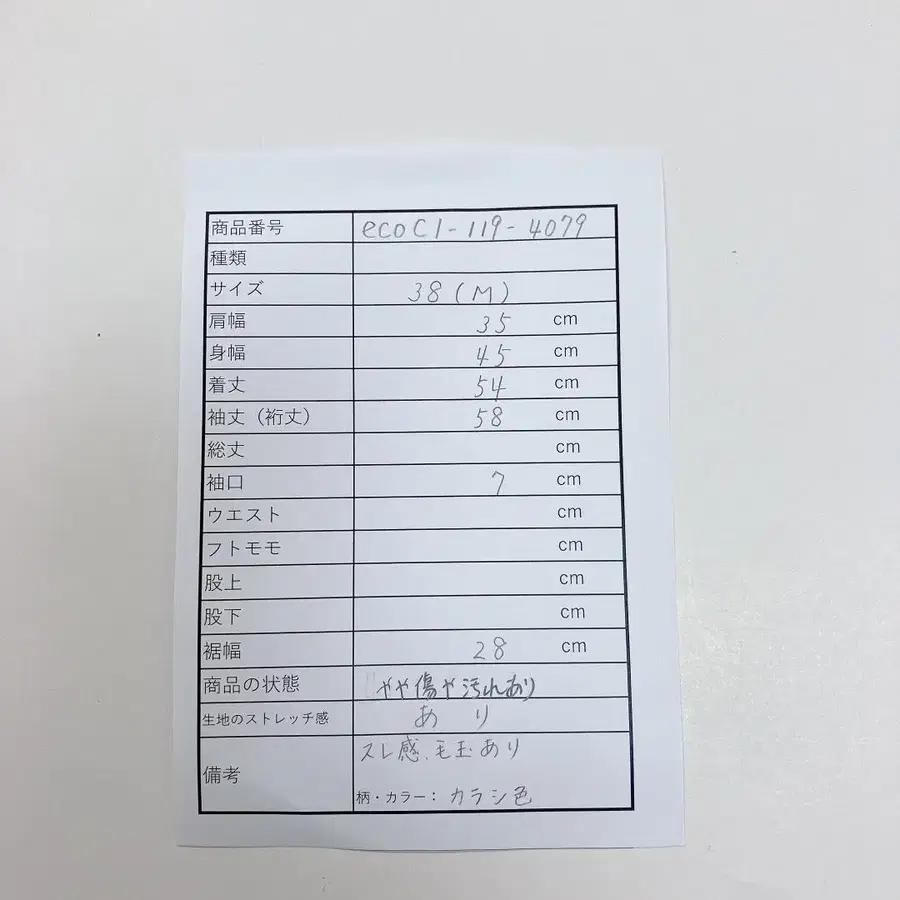 商品番号 ecoC1-119-4079
種類
サイズ 38(M)
肩幅 35 cm
身幅 45 cm
着丈 54 cm
袖丈（裄丈） 58 cm
総丈 cm
袖口 7 cm
ウエスト cm
フトモモ cm
股上 cm
股下 cm
裾幅 28 cm
商品の状態 やや傷や汚れあり
生地のストレッチ感 あり
備考 スレ感、毛玉あり
柄・カラー： カラシ色